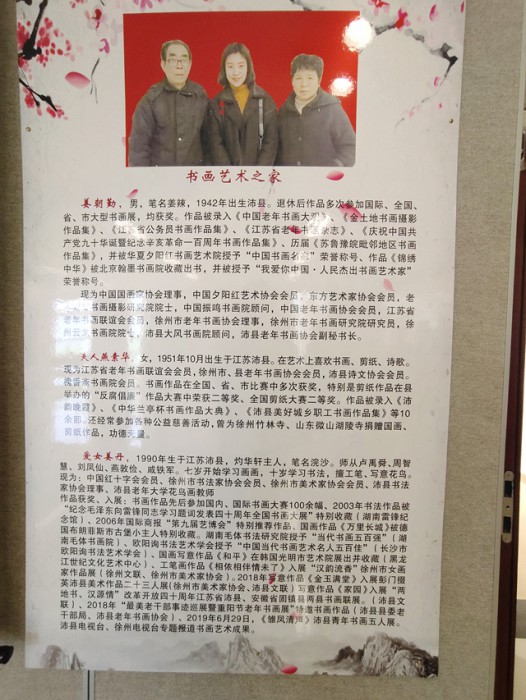 书画艺术之家
姜朝勤，男，笔名姜辣，1942年出生沛县。退休后作品多次参加国际、全国、
省、市大型书画展，均获奖。作品被录入《中国老年书画大观》、《金土地书画摄影
作品集》、《江苏省公务员书画作品集》、《江苏省老年书画杂志》、《庆祝中国共
产党九十华诞暨纪念辛亥革命一百周年书画作品集》、历届《苏鲁豫皖毗邻地区书画
作品集》，并被华夏夕阳红书画艺术院授予“中国书画名家”荣誉称号、作品《锦绣
中华》被北京翰墨书画院收藏出书，并被授予“我爱你中国·人民杰出书画艺术家”
荣誉称号。
现为中国国画家协会理事，中国夕阳红艺术协会会员，东方艺术家协会会员，老
年书画摄影研究院院士，中国振鸣书画院顾问，中国老年书画协会会员，江苏省
老年书画联谊会会员，徐州市老年书画协会理事，徐州市老年书画研究院研究员，徐
州云龙书画院院士，沛县大风书画院顾问，沛县老年书画协会副秘书长。
夫人燕素华，女，1951年10月出生于江苏沛县。在艺术上喜欢书画、剪纸、诗歌。
现为江苏省老年书画联谊会会员，徐州市、县老年书画协会会员，沛县诗文协会会员，
晚香斋书画院会员。书画作品在全国、省、市比赛中多次获奖，特别是剪纸作品在县
举办的“反腐倡廉”作品大赛中荣获二等奖、全国剪纸大赛二等奖。作品被录入《沛
韵晚霞》、《中华兰亭杯书画作品大典》、《沛县美好城乡职工书画作品集》等10
余部。还经常参加各种公益慈善活动，曾为徐州竹林寺、山东微山湖陵寺捐赠国画、
剪纸作品，功德无量。
爱女姜丹，1990年生于江苏沛县，灼华轩主人，笔名浣沙。师从卢禹舜、周智
慧、刘凤仙、燕敦俭、戚铁军。七岁开始学习画画，十岁学习书法，擅工笔、写意花鸟。
现为：中国红十字会会员、徐州市书法家协会会员、徐州市美术家协会会员、沛县书法
家协会理事、沛县老年大学花鸟画教师
作品获奖、入展：书画作品先后参加国内、国际书画大赛100余幅、2003年书法作品被
“纪念毛泽东向雷锋同志学习题词发表四十周年全国书画大展”特别收藏（湖南雷锋纪
念馆）、2006年国际商报“第九届艺博会”特别推荐作品、国画作品《万里长城》被德
国布朗菲斯市古堡小主人特别收藏。湖南毛体书法研究院授予“当代书画五百强”（湖
南毛体书画院）、欧阳询书法艺术学会授予“中国当代书画艺术名人五百佳”（长沙市
欧阳询书法艺术学会）、国画写意作品《和平》在韩国光明市艺术院展出并收藏（黑龙
江世纪文化艺术中心）、工笔画作品《相依相伴情未了》入展“汉韵流香”徐州市女画
家作品展（徐州文联、徐州市美术家协会）。2018年写意作品《金玉满堂》入展彭门檵
英沛县美术作品二十三人展（徐州市美术家协会、沛县文联）写意作品《家园》入展“两
地书、汉源情”改革开放四十周年江苏省沛县、安徽省固镇县两县书画联展。（沛县文
联）、2018年“最美老干部事迹巡展暨重阳节老年书画展”特邀书画作品（沛县县委老
干部局、沛县老年书画协会）、2019年6月29日，《雏凤清声》沛县青年书画五人展。
沛县电视台、徐州电视台专题报道书画艺术成果。